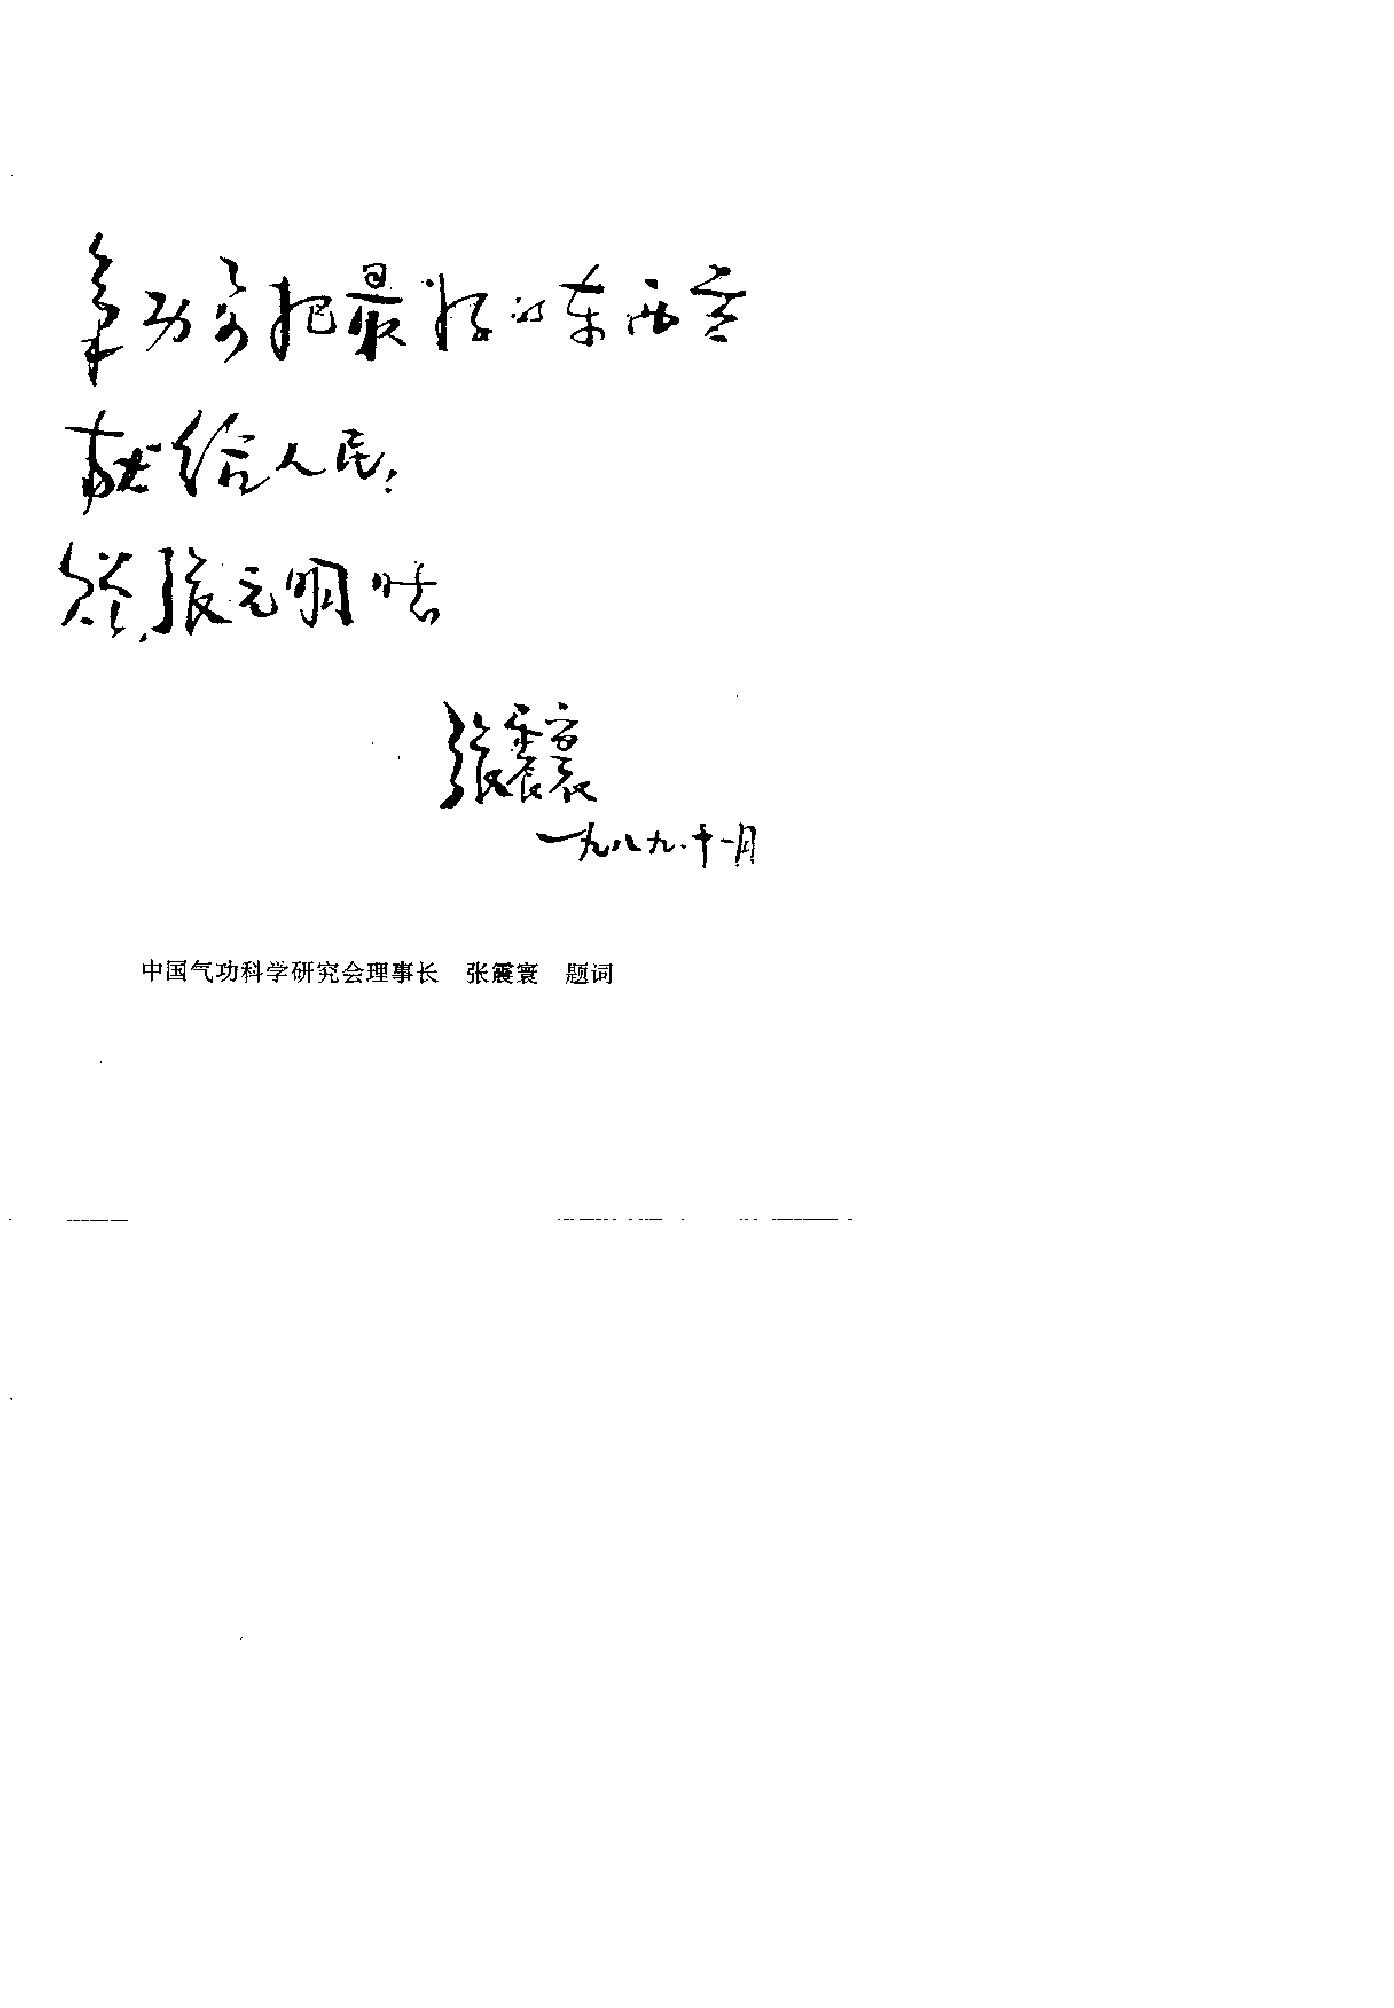 气功要把最好的东西贡
献给人民!
张元明
张震寰
一九八九.十一月
中国气功科学研究会理事长 张震寰 题词